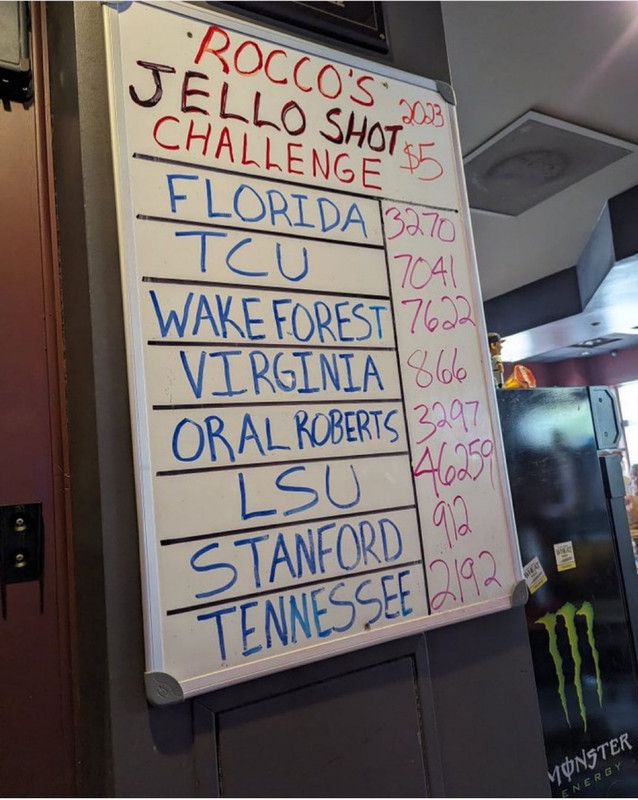 ROCCO'S
JELLO SHOT 2023
CHALLENGE $5
FLORIDA 3270
TCU 7041
WAKE FOREST 7622
VIRGINIA 866
ORAL ROBERTS 3297
LSU 46259
STANFORD 912
TENNESSEE 2192
MONSTER
ENERGY